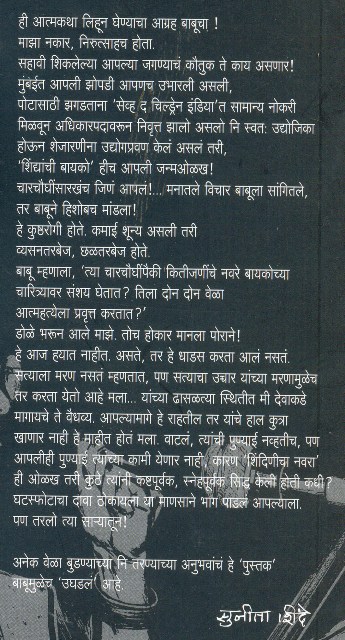 ही आत्मकथा लिहून घेण्याचा आग्रह बाबूचा !
माझा नकार, निरुत्साहच होता.
सहावी शिकलेल्या आपल्या जगण्याचं कौतुक ते काय असणार!
मुंबईत आपली झोपडी आपणच उभारली असली,
पोटासाठी झगडताना 'सेव्ह द चिल्ड्रेन इंडिया'त सामान्य नोकरी
मिळवून अधिकारपदावरून निवृत्त झालो असलो नि स्वत: उद्योजिका
होऊन शेजारणीना उद्योगप्रवण केलं असलं तरी,
'शिंद्यांची बायको' हीच आपली जन्मओळख!
चारचौघींसारखंच जिणं आपलं!... मनातले विचार बाबूला सांगितले,
तर बाबूने हिशोबच मांडला!
हे कुष्ठरोगी होते. कमाई शून्य असली तरी
व्यसनतरबेज, छळतरबेज होते.
बाबू म्हणाला, 'त्या चारचौघींपैकी कितीजणींचे नवरे बायकोच्या
चारित्र्यावर संशय घेतात? तिला दोन दोन वेळा
आत्महत्येला प्रवृत्त करतात?'
डोळे भरून आले माझे. तोच होकार मानला पोराने!
हे आज हयात नाहीत. असते, तर हे धाडस करता आलं नसतं.
सत्याला मरण नसतं म्हणतात, पण सत्याचा उच्चार यांच्या मरणामुळेच
तर करता येतो आहे मला... यांच्या ढासळत्या स्थितीत मी देवाकडे
मागायचे ते वैधव्य. आपल्यामागे हे राहतील तर यांचे हाल कुत्रा
खाणार नाही हे माहीत होतं मला. वाटलं, त्यांची पुण्याई नव्हतीच, पण
आपलीही पुण्याई त्यांच्या कामी येणार नाही, कारण 'शिंदिणीचा नवरा'
ही ओळख तरी कुठे त्यांनी कष्टपूर्वक, स्नेहपूर्वक सिद्ध केली होती कधी?
घटस्फोटाचा दावा ठोकायला या माणसाने भाग पाडलं आपल्याला.
पण तरलो त्या साऱ्यातून!
अनेक वेळा बुडण्याच्या नि तरण्याच्या अनुभवांचं हे 'पुस्तक'
बाबूमुळेच 'उघडलं' आहे.
सुनीता शिंदे